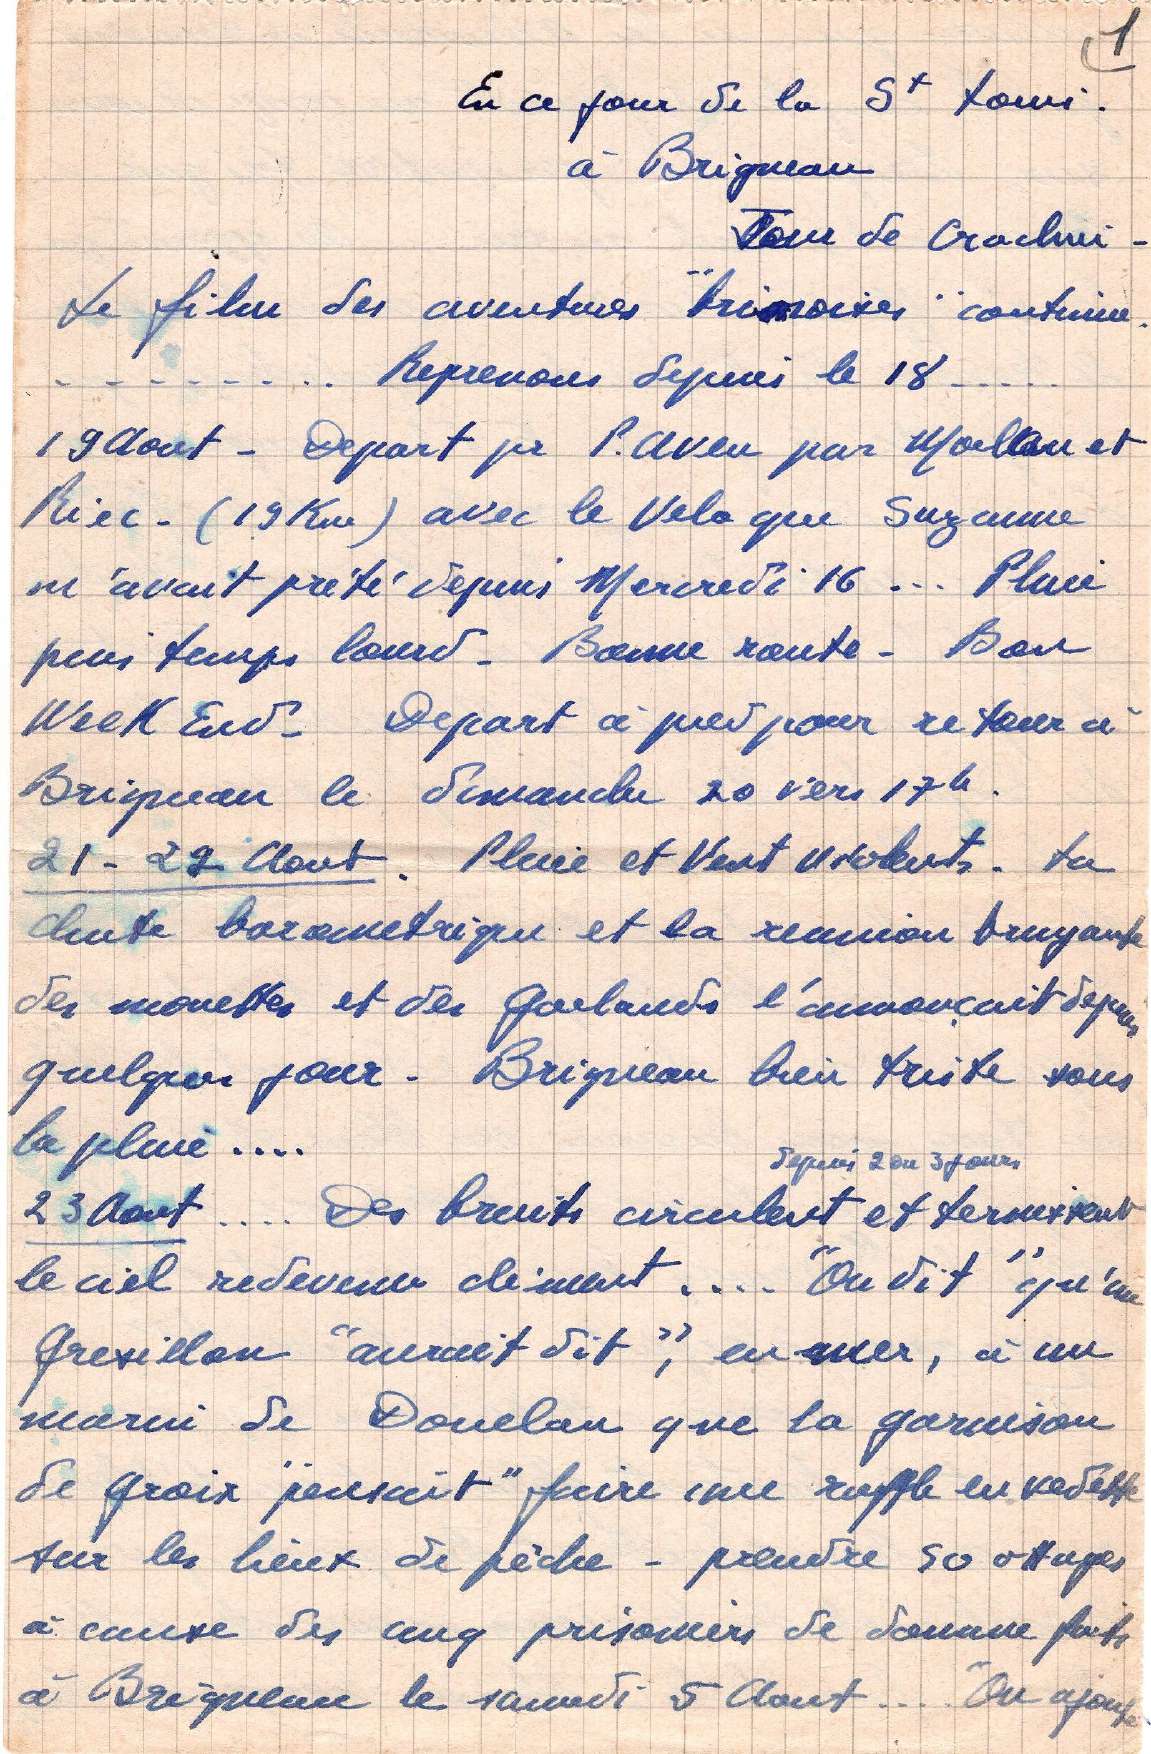 1
En ce jour de la St Louis.
à Brigneau
Jour de Crachin -
Le film des aventures "trinoises" continue.
- - - - - - - - - .. Reprenons depuis le 18 -----
19 Aout - Depart pr P. Aven par Moellan et
Riec - (19 Km) avec le Velo que Suzanne
m'avait prété depuis Mercredi 16 ... Pluie
puis temps lourd - Bonne route - Bon
Week End - Depart à pied pour retour à
Brigneau le dimanche 20 vers 17h.
21 - 22 Aout. Pluie et Vent violents. La
chute barometrique et la reunion bruyante
des mouettes et des Goelands l'annonçait depuis
quelques jour - Brigneau bien triste sous
la pluie ....
depuis 2 ou 3 jours
23 Aout .... Des bruits circulent et ternissent
le ciel redevenu clément .... "On dit" qu'un
Gresillon "aurait dit", en mer, à un
marin de Douelan que la garnison
de Groix "pensait" faire une raffle en vedette
sur les lieux de pêche - prendre 50 otages
à cause des cinq prisoniers de douane faits
à Brigneau le samedi 5 Aout .... "On ajoute